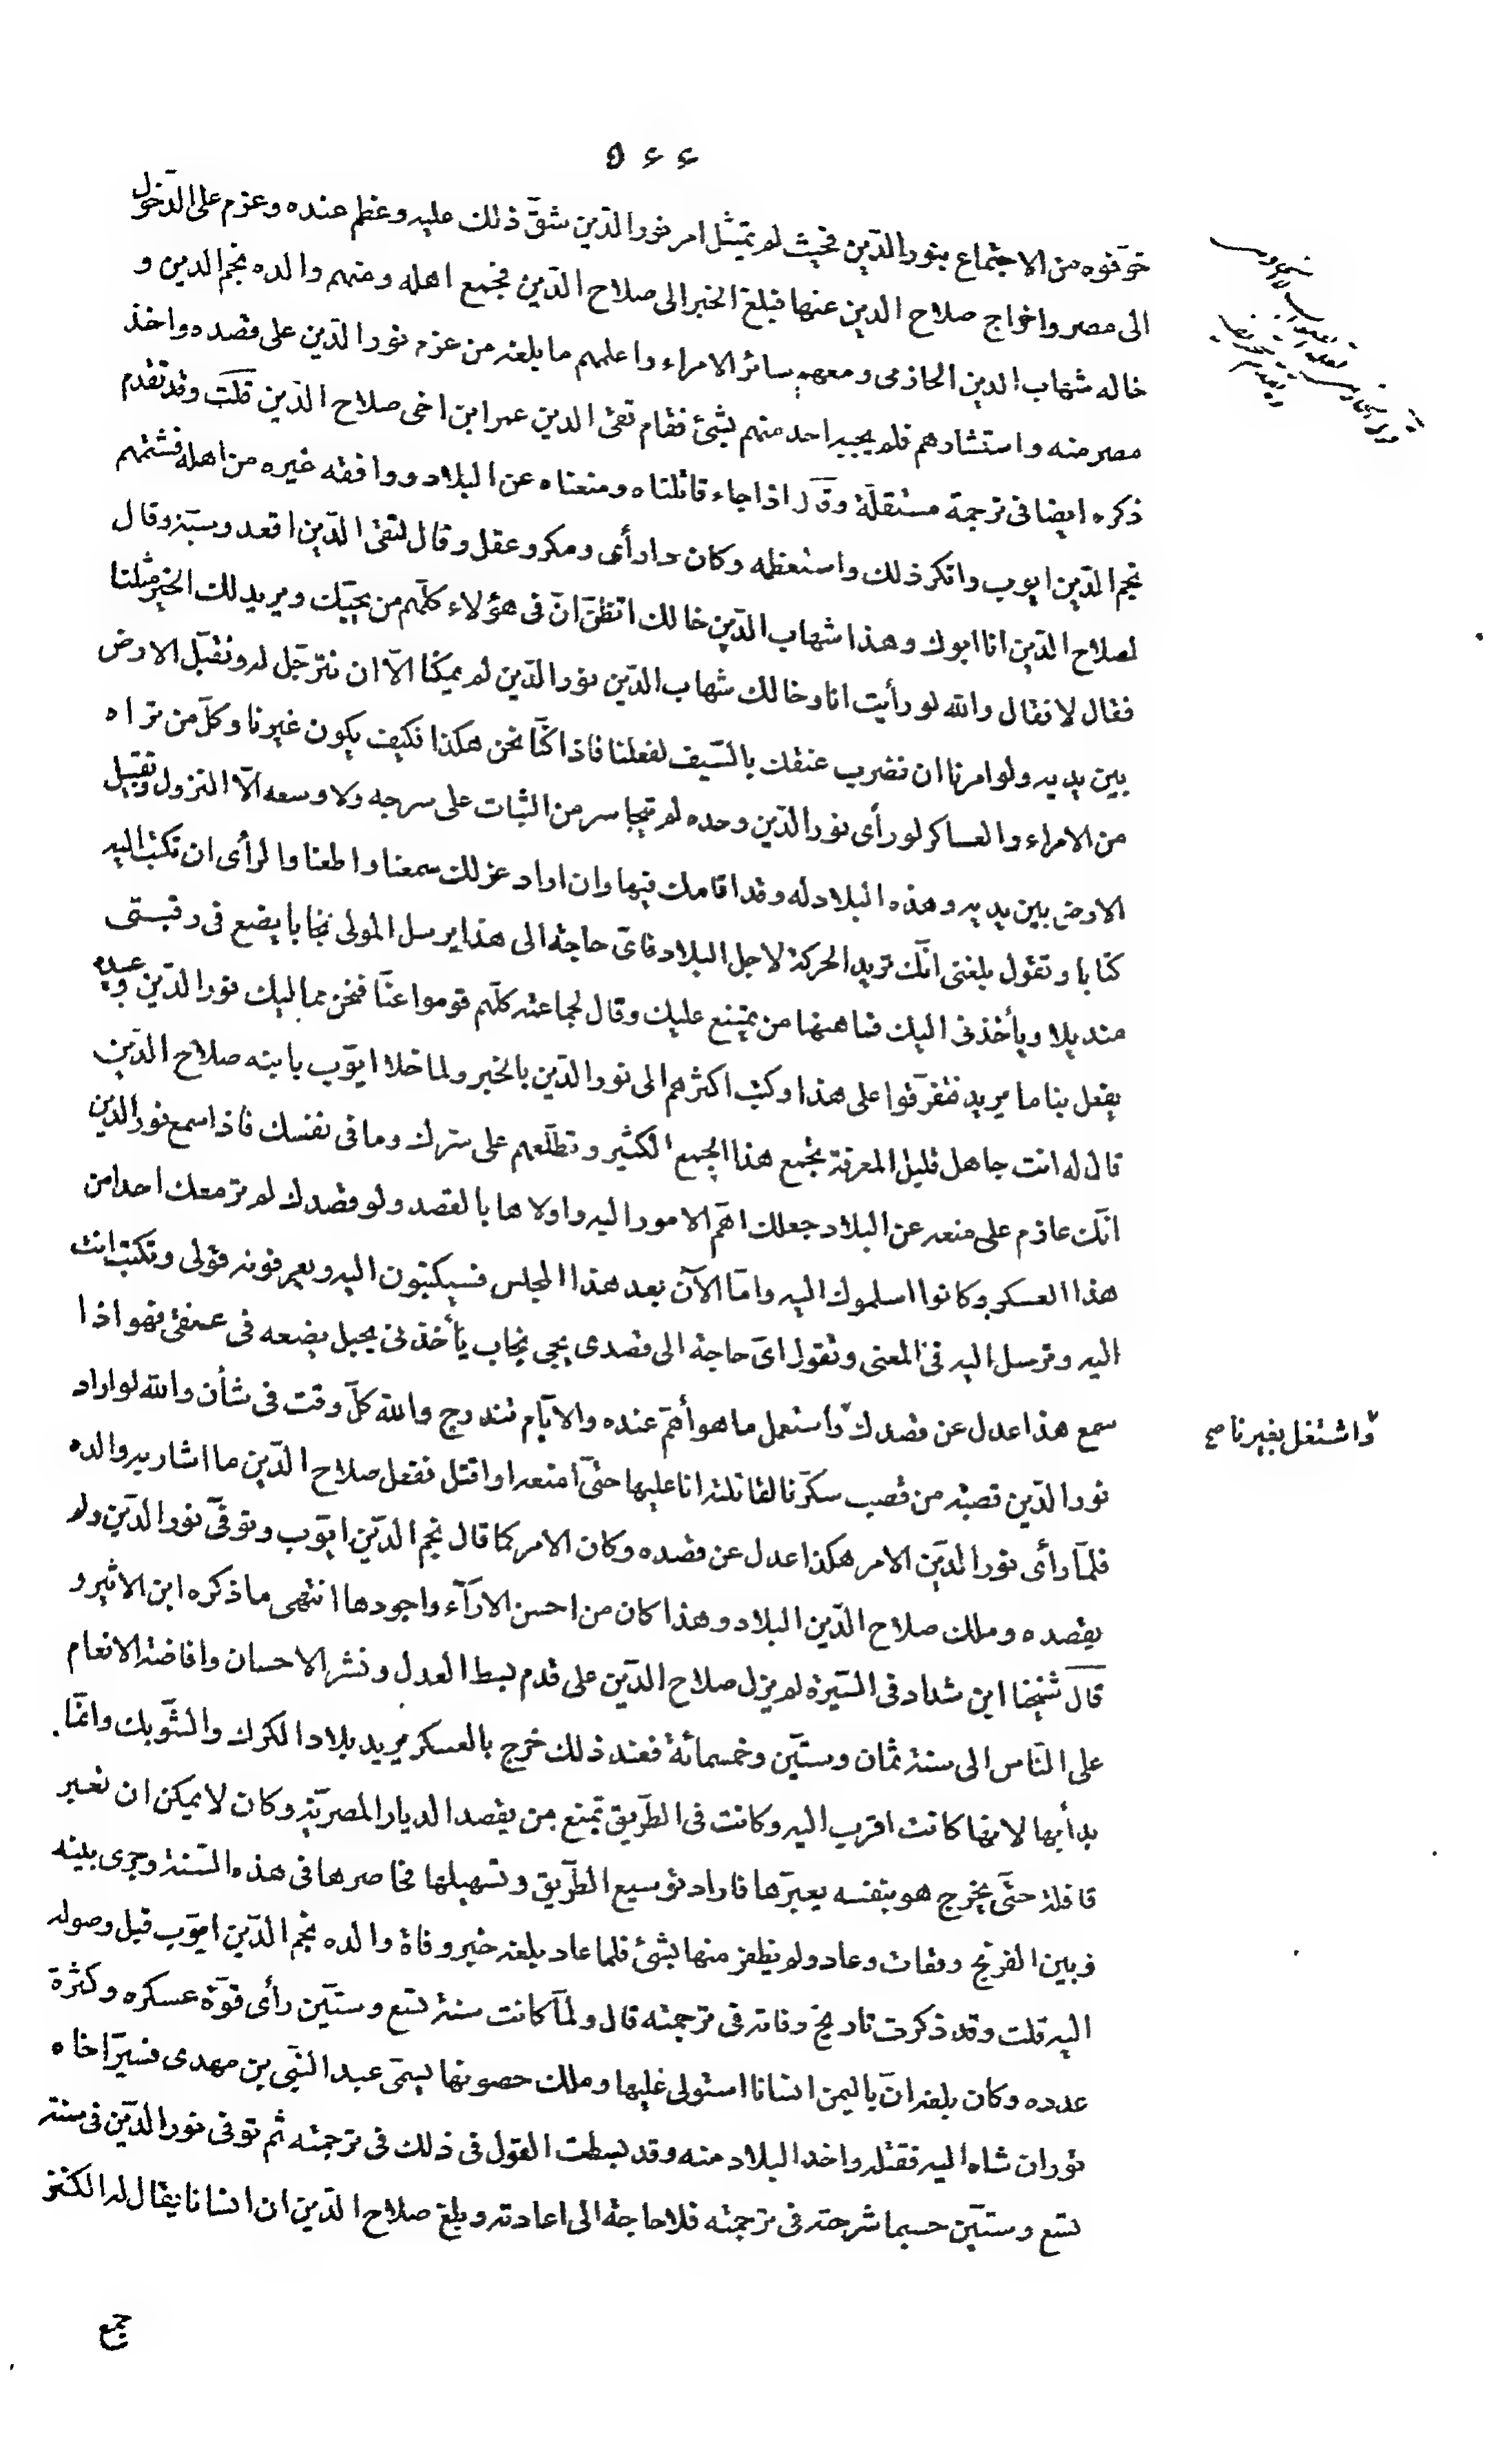 ٥٤٤
خوّفوه من الاجتماع بنور الدّين فحيث لم يمتثل امر نور الدّين شقّ ذلك عليه وعظم عنده وعزم على الدّخول
الى مصر واخراج صلاح الدين عنها فبلغ الخبر الى صلاح الدّين فجمع اهله ومنهم والده نجم الدين و
خاله شهاب الدين الحازمى ومعهم سائر الامراء واعلمهم ما بلغه من عزم نور الدّين على قصده واخذ
مصر منه واستشارهم فلم يجبه احد منهم بشئ فقام تقى الدين عمر ابن اخى صلاح الدّين قلت وقد تقدم
ذكره ايضا فى ترجمة مستقلّة وقال اذا جاء قاتلناه ومنعناه عن البلاد ووافقه غيره من اهله فشتمهم
نجم الدّين ايوب وانكر ذلك واستعظمه وكان ذا رأى ومكر وعقل وقال لتقى الدّين اقعد وسبّه وقال
لصلاح الدّين انا ابوك وهذا شهاب الدّين خالك اتظنّ انّ فى هؤلاء كلّهم من يحبّك ويريد لك الخير مثلنا
فقال لا فقال والله لو رأيت انا وخالك شهاب الدّين نور الدّين لم يمكنّا الاّ ان نترجّل له ونقبّل الارض
بين يديه ولو امرنا ان نضرب عنقك بالسّيف لفعلنا فاذا كنّا نحن هكذا فكيف يكون غيرنا وكلّ من تراه
من الامراء والعساكر لو رأى نور الدّين وحده لم يتجاسر من الثبات على سرجه ولا وسعه الاّ النزول وتقبيل
الارض بين يديه وهذه البلاد له وقد اقامك فيها وان اراد عزلك سمعنا واطعنا والرأى ان تكتب اليه
كتابا وتقول بلغنى انّك تريد الحركة لاجل البلاد فاىّ حاجة الى هذا يرسل المولى نجّابا يضع فى رقبتى
منديلا ويأخذنى اليك فما ههنا من يمتنع عليك وقال لجماعته كلّهم قوموا عنّا فنحن مماليك نور الدّين وعبيده
يفعل بنا ما يريد فتفرّقوا على هذا وكتب اكثرهم الى نور الدّين بالخبر ولما خلا ايّوب بابنه صلاح الدّين
قال له انت جاهل قليل المعرفة تجمع هذا الجمع الكثير وتطلّعهم على سرّك وما فى نفسك فاذا سمع نور الدين
انّك عازم على منعه عن البلاد جعلك اهمّ الامور اليه واولاها بالقصد ولو قصدك لم تر معك احدا من
هذا العسكر وكانوا اسلموك اليه وامّا الآن بعد هذا المجلس فسيكتبون اليه ويعرفونه قولى وتكتب انت
اليه وترسل اليه فى المعنى وتقول اىّ حاجة الى قصدى يجى نجّاب يأخذنى بحبل يضعه فى عنقى فهو اذا
سمع هذا عدل عن قصدك واستعمل ما هو أهمّ عنده والايّام تندرج والله كلّ وقت فى شأن والله لو اراد
واشتغل بغيرنا صح
نور الدّين قصبة من قصب سكّرنا لقاتلته انا عليها حتّى امنعه او اقتل ففعل صلاح الدّين ما اشار به والده
فلمّا رأى نور الدّين الامر هكذا عدل عن قصده وكان الامر كما قال نجم الدّين ايّوب وتوفّى نور الدّين ولم
يقصده وملك صلاح الدّين البلاد وهذا كان من احسن الارآء واجودها انتهى ما ذكره ابن الاثير و
قال شيخنا ابن شداد فى السّيرة لم يزل صلاح الدّين على قدم بسط العدل ونشر الاحسان وافاضة الانعام
على النّاس الى سنة ثمان وستّين وخمسمائة فعند ذلك خرج بالعسكر يريد بلاد الكرك والشّوبك وانّما
بدأ بها لانها كانت اقرب اليه وكانت فى الطّريق تمنع من يقصد الديار المصريّة وكان لا يمكن ان تعبر
قافلة حتّى يخرج هو بنفسه يعبرّها فاراد توسيع الطّريق وتسهيلها فحاصرها فى هذه السّنة وجرى بينه
وبين الفرنج وقعات وعاد ولم يظفر منها بشئ فلما عاد بلغه خبر وفاة والده نجم الدّين ايّوب قبل وصوله
اليه قلت وقد ذكرت تاريخ وفاته فى ترجمته قال ولمّا كانت سنة تسع وستّين رأى قوّة عسكره وكثرة
عدده وكان بلغه انّ باليمن انسانا استولى عليها وملك حصونها يسمّى عبد النّبى بن مهدى فسيّر اخاه
توران شاه اليه فقتله واخذ البلاد منه وقد بسطت القول فى ذلك فى ترجمته ثم توفى نور الدّين فى سنة
تسع وستّين حسبما شرحته فى ترجمته فلا حاجة الى اعادته وبلغ صلاح الدّين ان انسانا يقال له الكنز
جمع